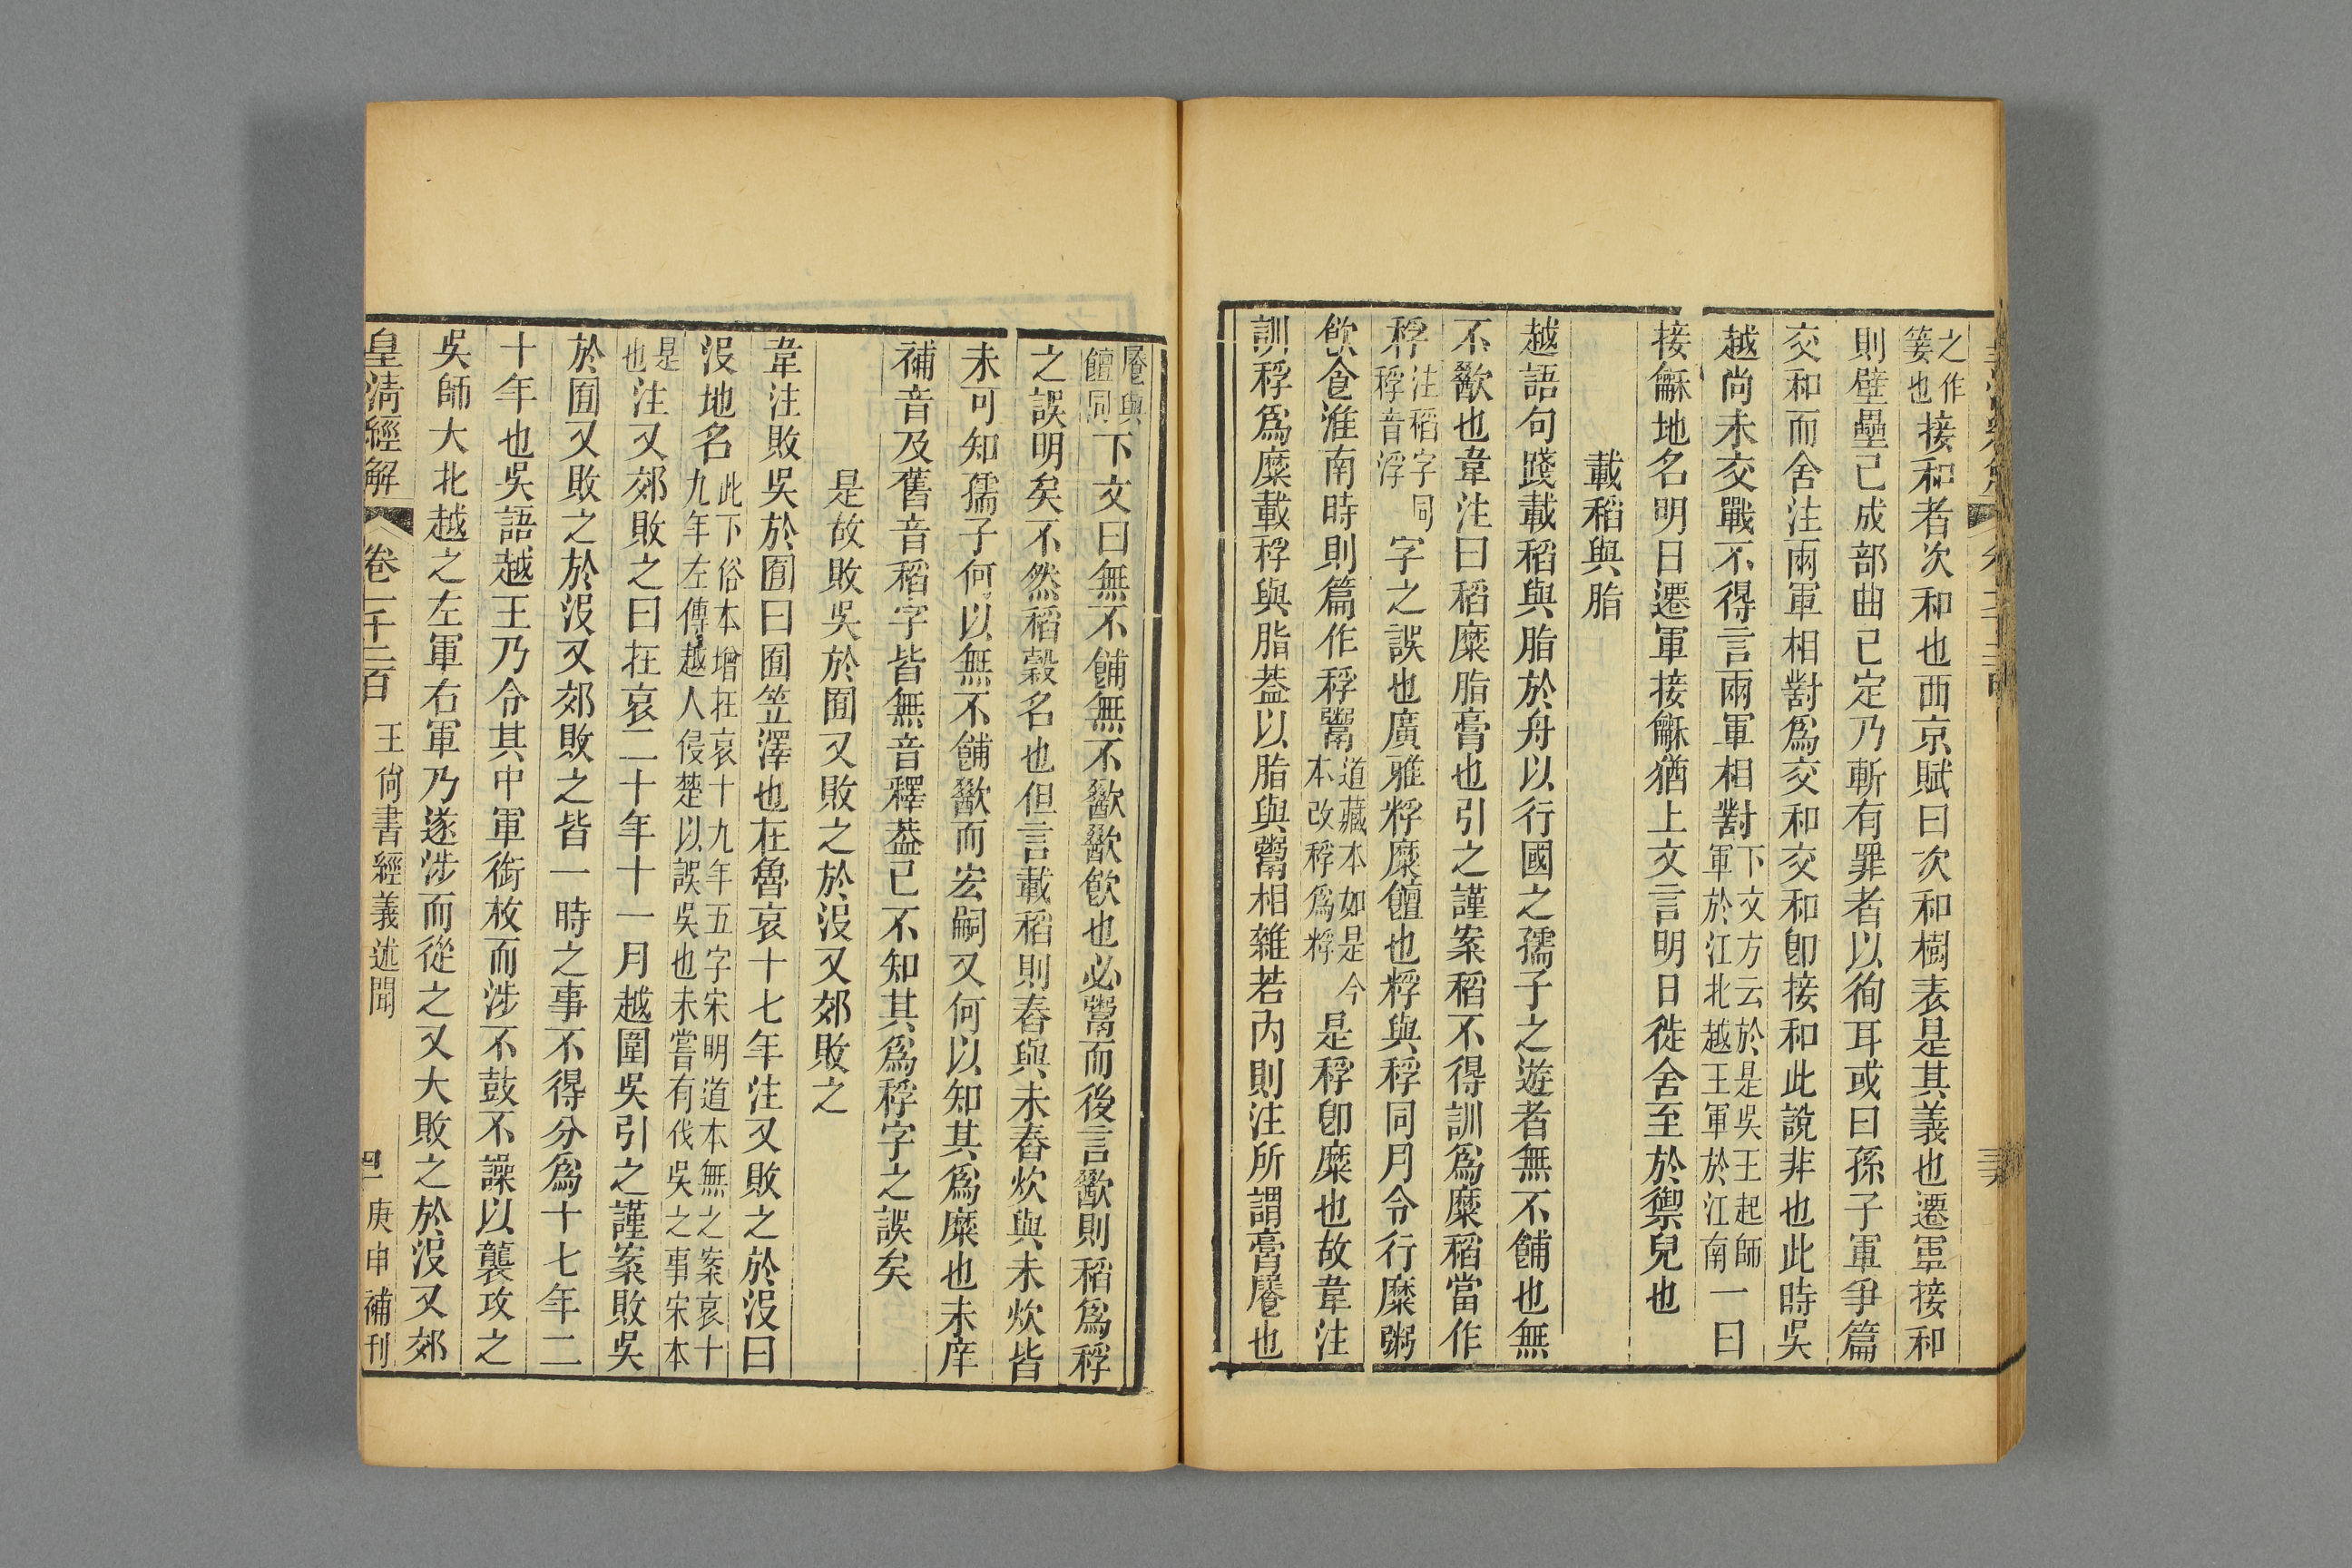 之作
萋也
接和者次和也西京賦曰次和樹表是其義也遷軍接和
則壁壘已成部曲已定乃斬有罪者以徇耳或曰孫子軍爭篇
交和而舍注兩軍相對爲交和交和卽接和此說非也此時吳
越尚未交戰不得言兩軍相對
下文方云於是吳王起師
軍於江北越王軍於江南
一曰
接龢地名明日遷軍接龢猶上文言明日徙舍至於禦兒也
載稻與脂
越語句踐載稻與脂於舟以行國之孺子之遊者無不餔也無
不歠也韋注曰稻糜脂膏也引之謹案稻不得訓爲糜稻當作
稃
注稻字同
稃音浮
字之誤也廣雅粰糜饘也粰與稃同月令行糜粥
飮食淮南時則篇作稃鬻
道藏本如是今
本改稃爲粰
是稃卽糜也故韋注
訓稃爲糜載稃與脂葢以脂與鬻相雜若內則注所謂膏䭔也
䭔與
饘同
下文曰無不餔無不歠歠飮也必鬻而後言歠則稻爲稃
之誤明矣不然稻穀名也但言載稻則舂與未舂炊與未炊皆
未可知孺子何以無不餔歠而宏嗣又何以知其爲糜也未庠
補音及舊音稻字皆無音釋葢已不知其爲稃字之誤矣
是故敗吳於囿又敗之於沒又郊敗之
韋注敗吳於囿曰囿笠澤也在魯哀十七年注又敗之於沒曰
沒地名
此下俗本增在哀十九年五字宋明道本無之案哀十
九年左傳越人侵楚以誤吳也未嘗有伐吳之事宋本
是
也
注又郊敗之曰在哀二十年十一月越圍吳引之謹案敗吳
於囿又敗之於沒又郊敗之皆一時之事不得分爲十七年二
十年也吳語越王乃令其中軍銜枚而涉不鼓不譟以襲攻之
吳師大北越之左軍右軍乃遂涉而從之又大敗之於沒又郊
皇淸經解
卷一千二百
王尙書經義述聞
庚申補刊